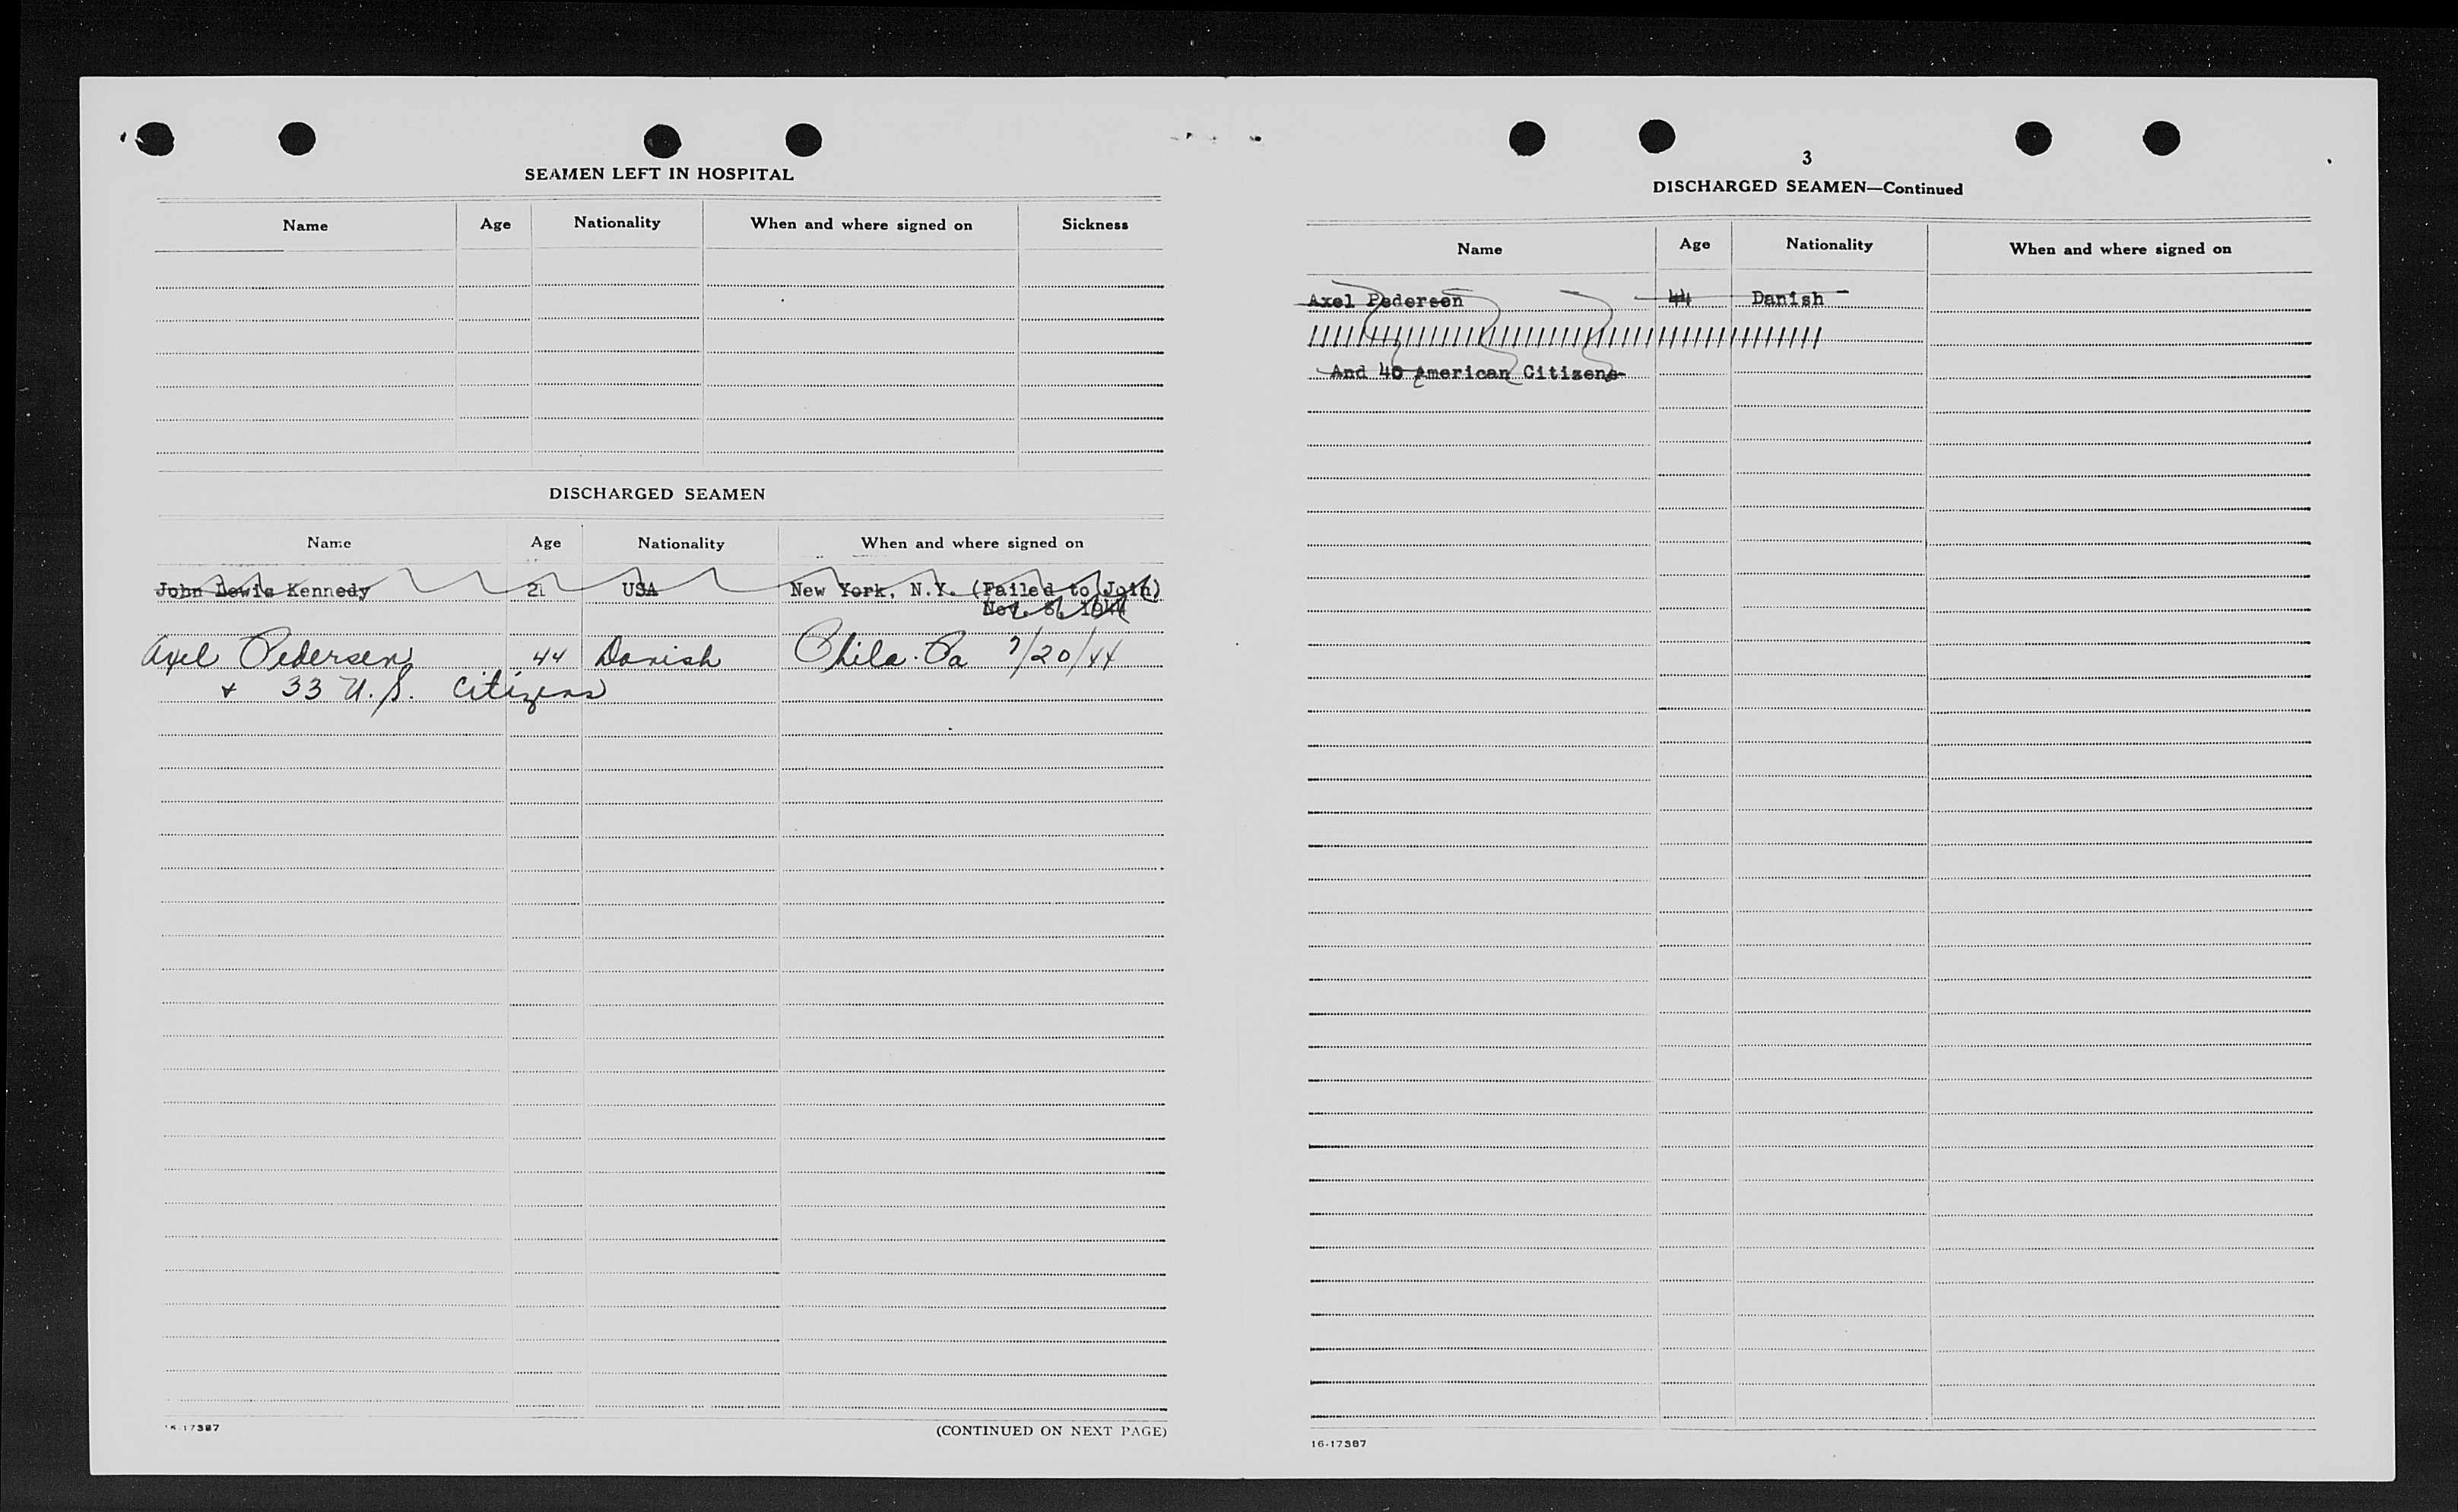 SEAMEN LEFT IN HOSPITAL
Name Age Nationality When and where signed on Sickness
DISCHARGED SEAMEN
Name Age Nationality When and where signed on
John Lewis Kennedy 21 USA New York, N.Y. (Failed to Join)
Nov. 1944
Axel Pedersen 44 Danish Phila. Pa 7/20/44
+ 33 U.S. Citizens
16-17387
(CONTINUED ON NEXT PAGE)
3
DISCHARGED SEAMEN—Continued
Name Age Nationality When and where signed on
Axel Pedersen 44 Danish
//////////////////////////////////////////
And 40 American Citizens
16-17387